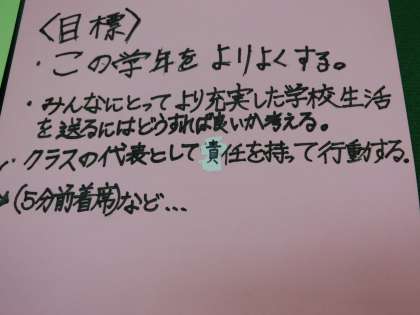 〈目標〉
・この学年をよりよくする。
・みんなにとってより充実した学校生活
を送るにはどうすれば良いか考える。
・クラスの代表として責任を持って行動する。
(5分前着席)など...